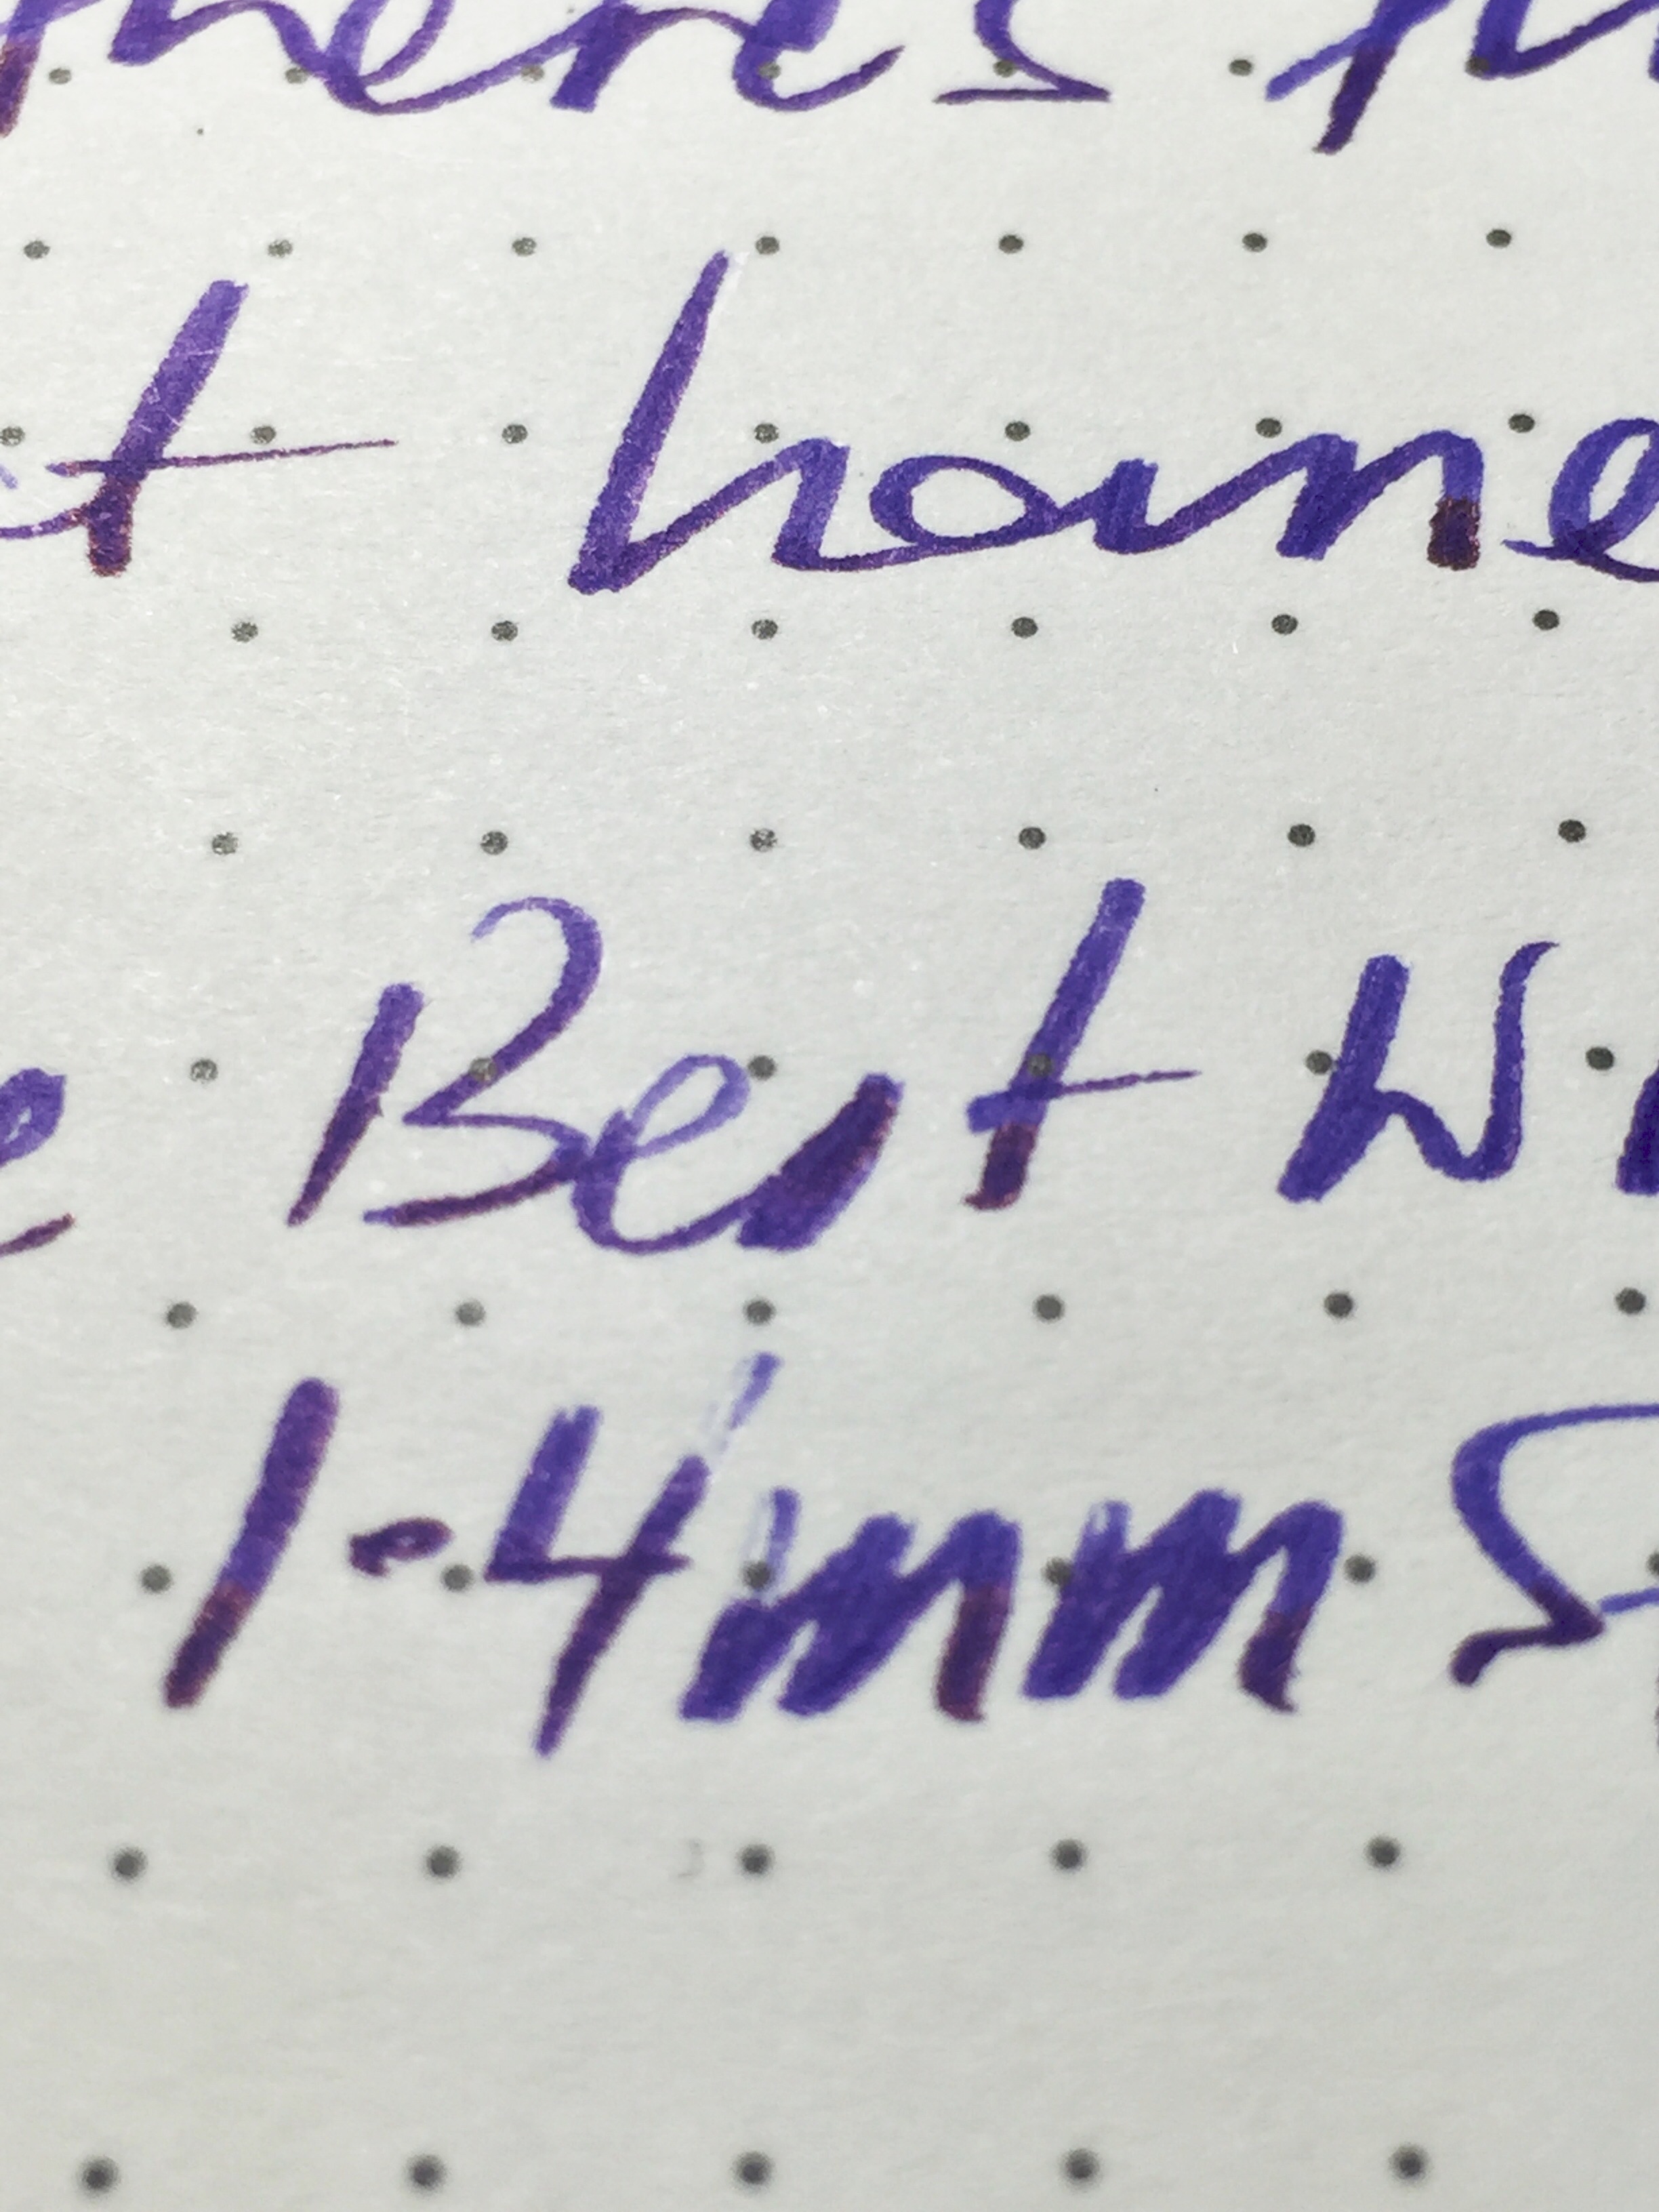 there's
t home
e Best w
1-4mm S